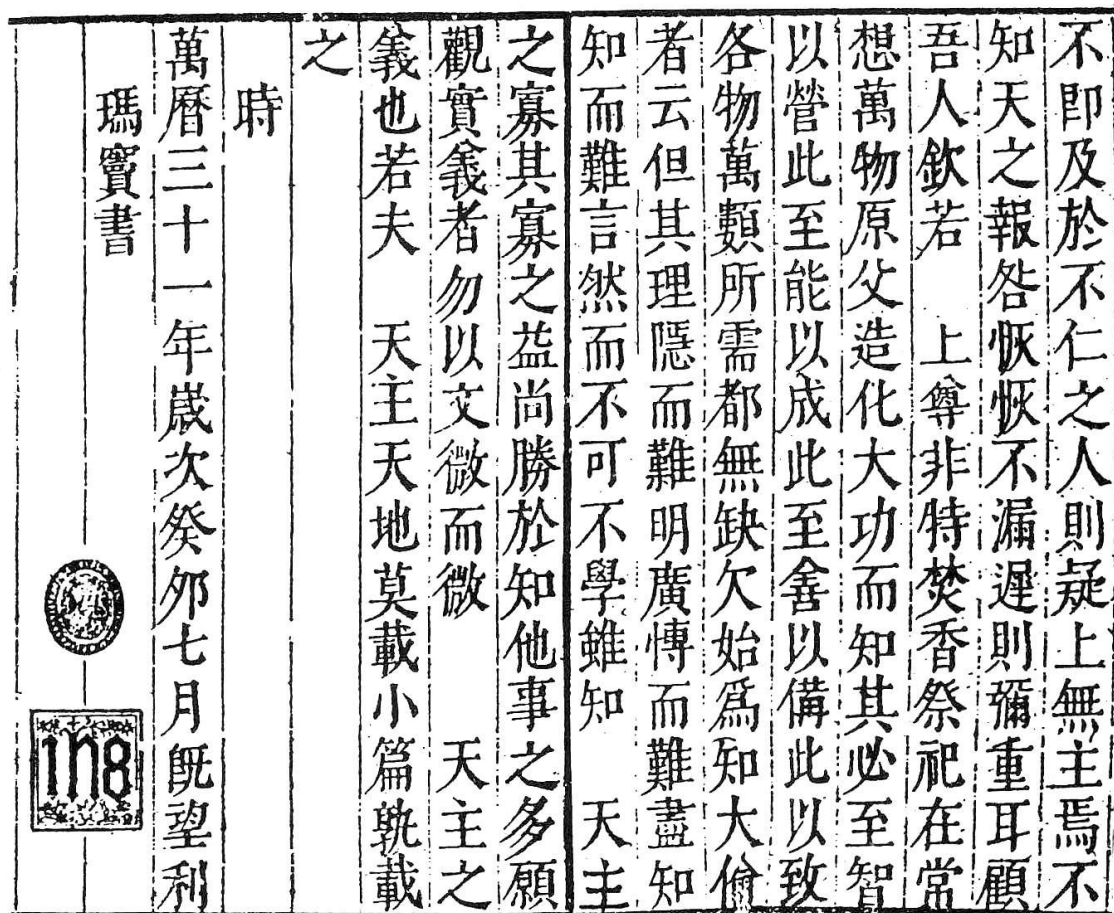 不即及於不仁之人則疑上無主焉不
知天之報咎恢恢不漏遲則彌重耳顧
吾人欽若　上尊非特焚香祭祀在常
想萬物原父造化大功而知其必至智
以營此至能以成此至善以備此以致
各物萬類所需都無缺欠始爲知大倫
者云但其理隱而難明廣愽而難盡知
知而難言然而不可不學雖知　天主
之寡其寡之益尚勝於知他事之多願
觀實義者勿以文微而微　天主之
義也若夫　天主天地莫載小篇孰載
之
時
萬曆三十一年歲次癸卯七月旣望利
瑪竇書
IHS